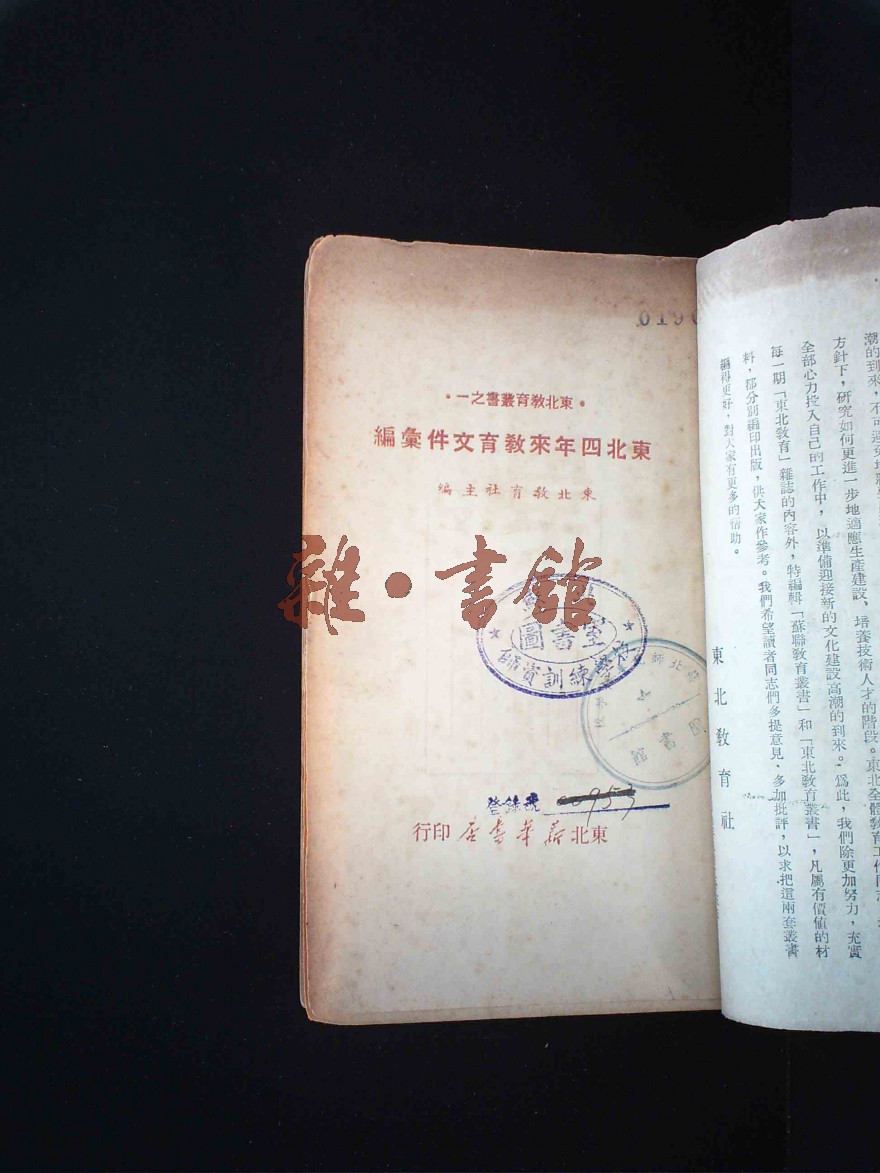 0190
•東北教育叢書之一•
東北四年來教育文件彙編
東北教育社主編
雜·書館
圖書室
師資訓練學校
登錄號 953
東北新華書店印行
方針下，研究如何更進一步地適應生產建設、培養技術人才的階段。東北全體教育工作同志，
全部心力投入自己的工作中，以準備迎接新的文化建設高潮的到來。爲此，我們除更加努力，充實
每一期「東北教育」雜誌的內容外，特編輯「蘇聯教育叢書」和「東北教育叢書」，凡屬有價値的材
料，都分別編印出版，供大家作參考。我們希望讀者同志們多提意見，多加批評，以求把這兩套叢書
編得更好，對大家有更多的幫助。
東北教育社